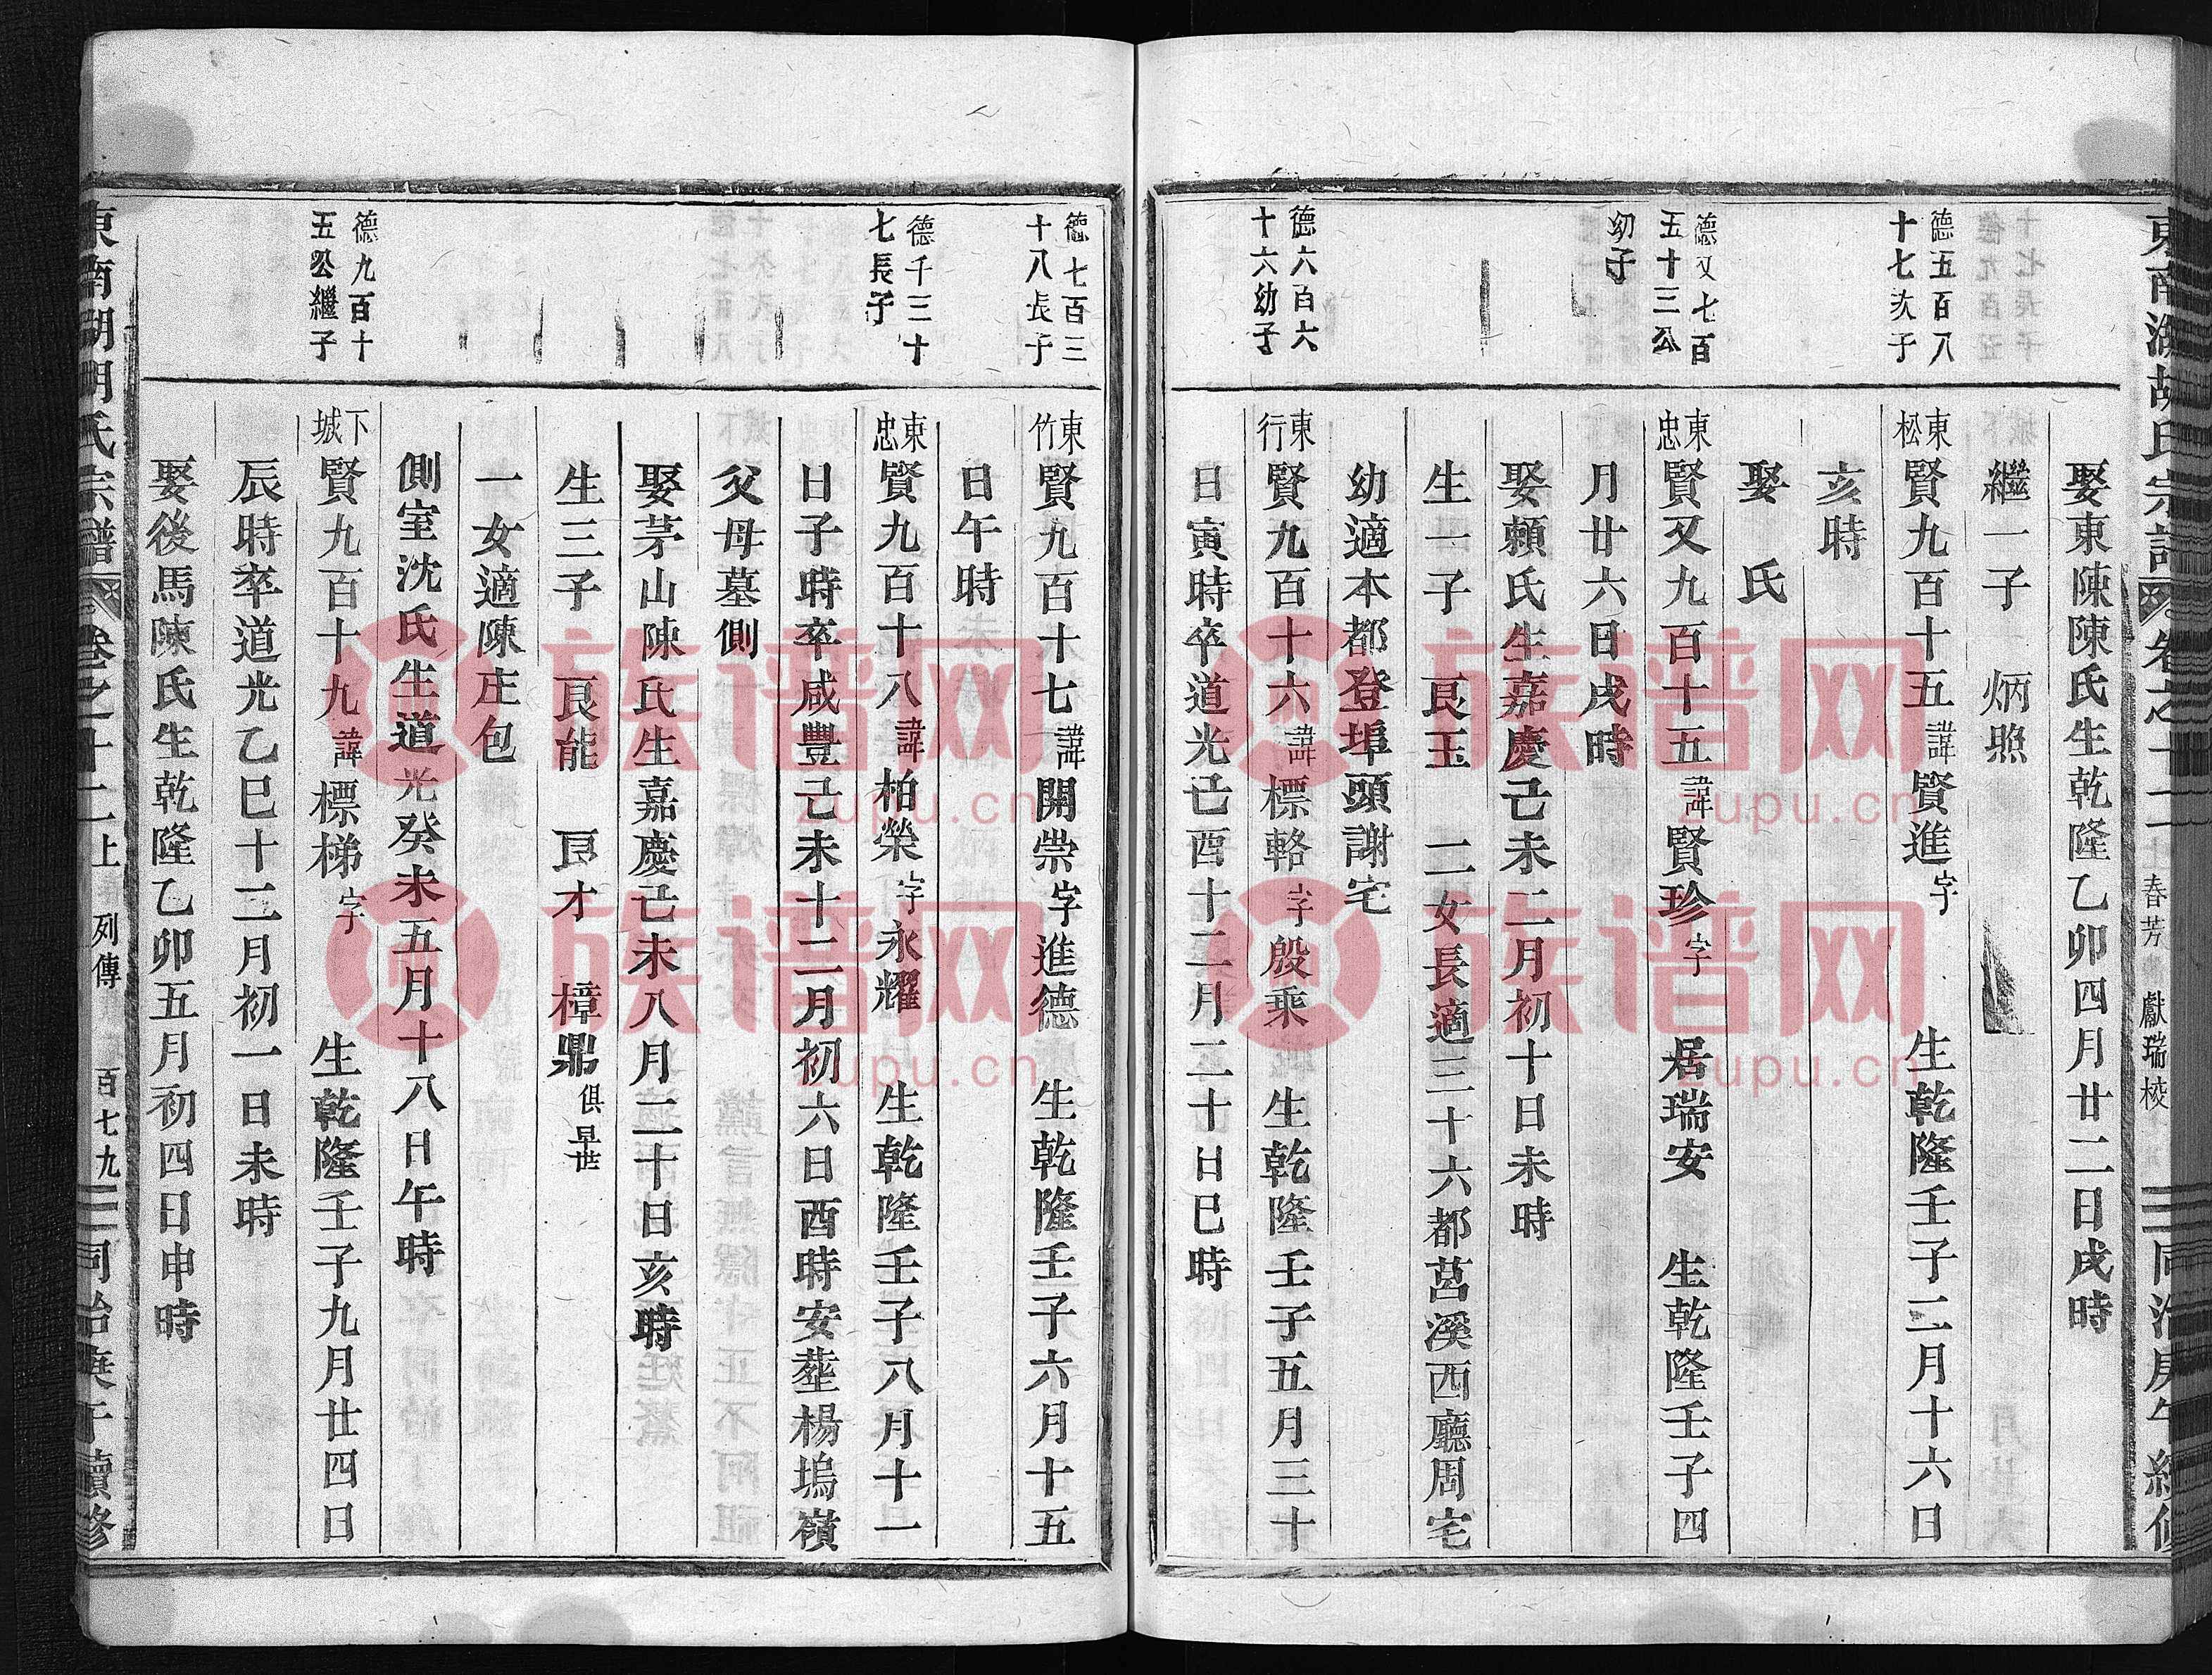 東南湖胡氏宗譜
春芳
獻瑞校
同治庚午續修
娶東陳陳氏生乾隆乙卯四月廿二日戌時
繼一子 炳照
德五百八
十七次子
東松
賢九百十五諱賢進字 生乾隆壬子二月十六日
亥時
娶 氏
德又七百
五十三公
幼子
東忠
賢又九百十五諱賢珍字 居瑞安 生乾隆壬子四
月廿六日戌時
娶賴氏生嘉慶己未二月初十日未時
生一子 良玉 二女長適三十六都莒溪西廳周宅
幼適本都登埠頭謝宅
德六百六
十六幼子
東行
賢九百十六諱標輅字殷乘 生乾隆壬子五月三十
日寅時卒道光己酉十二月二十日巳時
德七百三
十八長子
東竹
賢九百十七諱開崇字進德 生乾隆壬子六月十五
日午時
德千三十
七長子
東忠
賢九百十八諱柏榮字永耀 生乾隆壬子八月十一
日子時卒咸豐己未十二月初六日酉時安塟楊塢嶺
父母墓側
娶茅山陳氏生嘉慶己未八月二十日亥時
生三子 良能 良才 樟鼎俱早世
一女適陳庄包
側室沈氏生道光癸未五月十八日午時
德九百十
五公繼子
下城
賢九百十九諱標梯字 生乾隆壬子九月廿四日
辰時卒道光乙巳十二月初一日未時
娶後馬陳氏生乾隆乙卯五月初四日申時
東南湖胡氏宗譜
卷之十二上
列傳
百七九
同治庚午續修
族谱网
zupu.cn
族谱网
zupu.cn
族谱网
zupu.cn
族谱网
zupu.cn